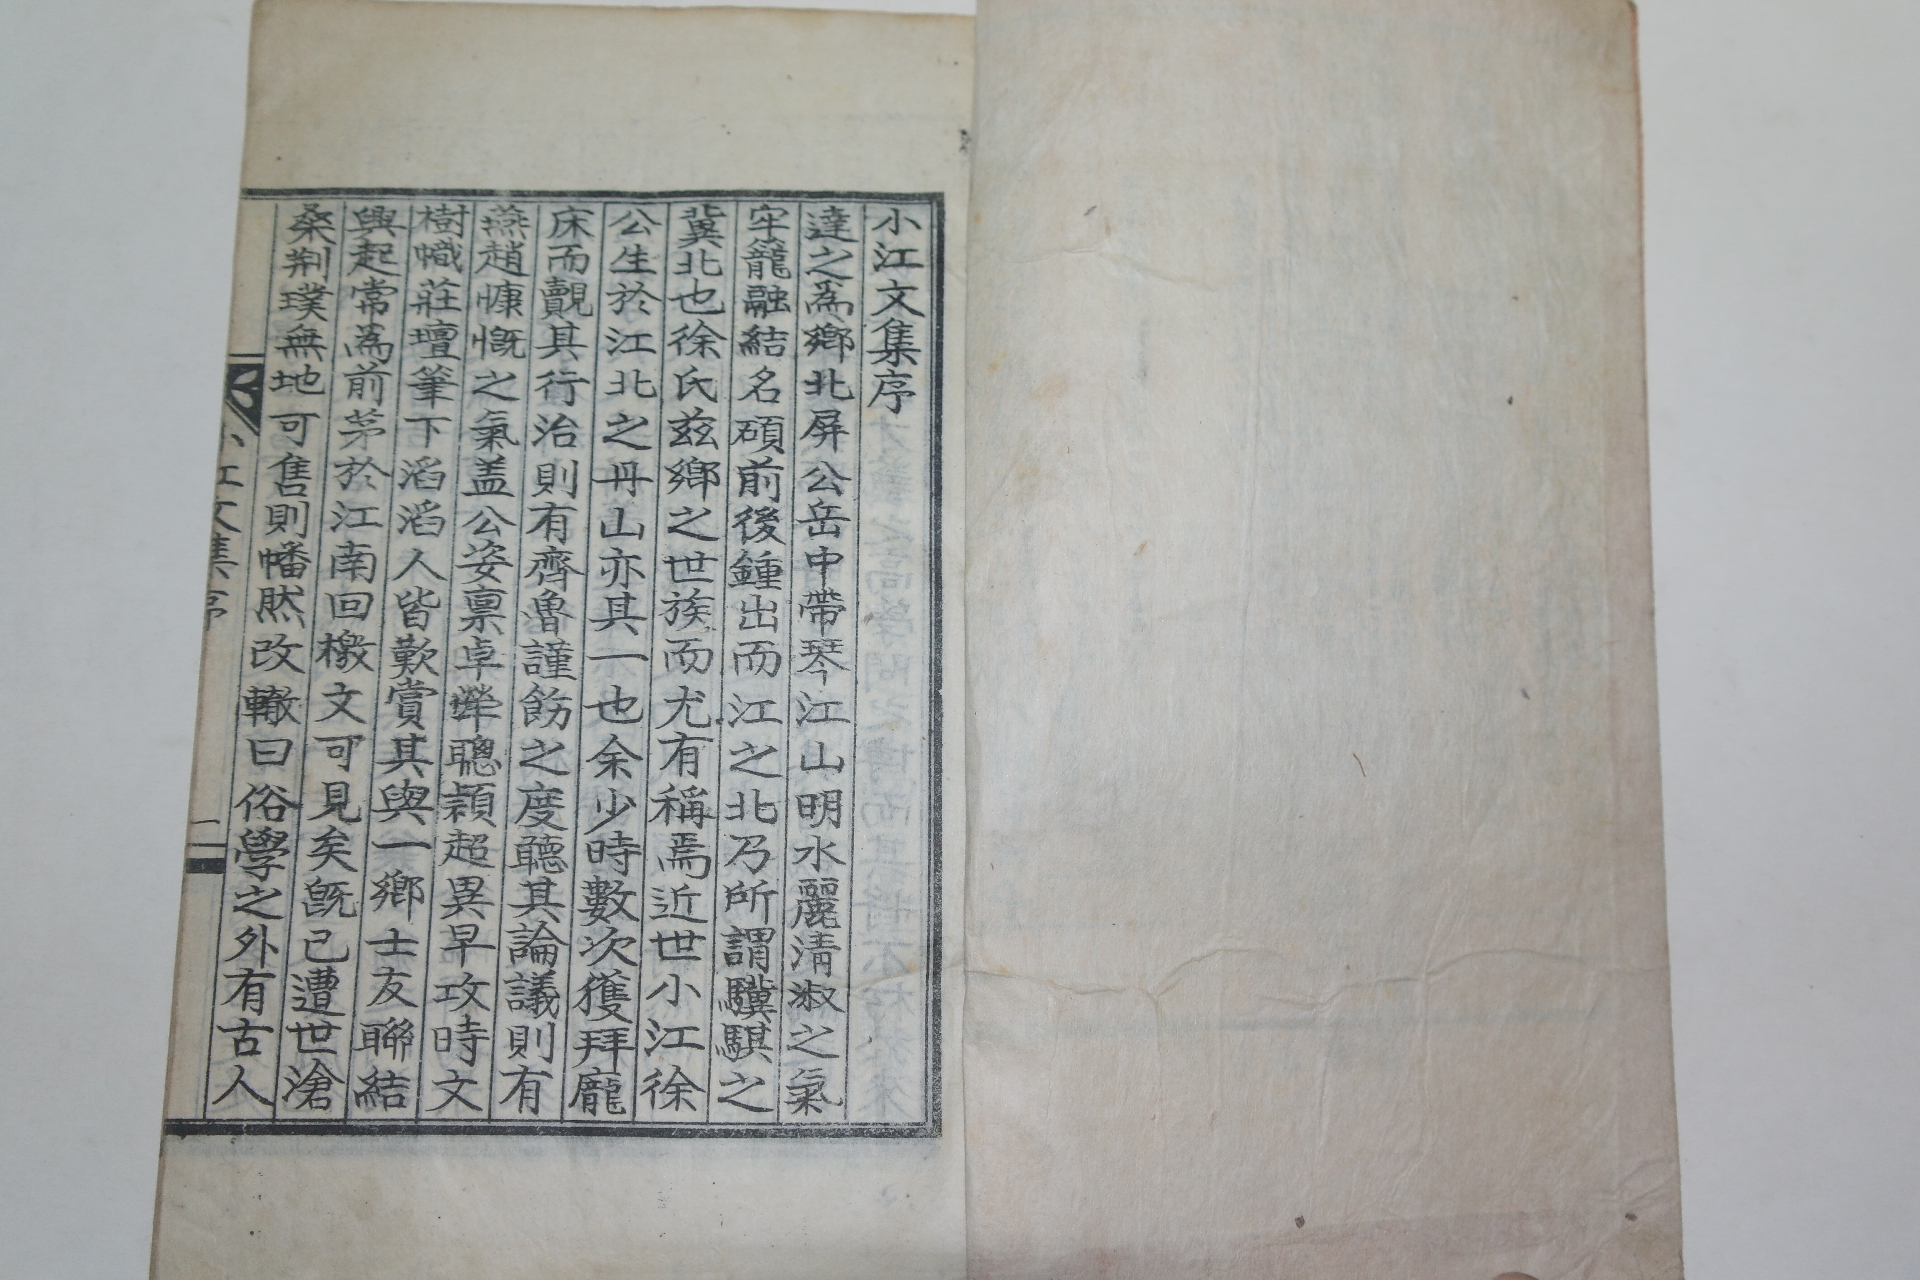 小江文集序
達之爲鄕北屏公岳中帶琴江山明水麗淸淑之氣
牢籠融結名碩前後鍾出而江之北乃所謂驥騏之
冀北也徐氏玆鄕之世族而尤有稱焉近世小江徐
公生於江北之丹山亦其一也余少時數次獲拜龐
床而覿其行治則有齊魯謹飭之度聽其論議則有
燕趙慷慨之氣盖公姿禀卓犖聰穎超異早攻時文
樹幟莊壇筆下滔滔人皆歎賞其與一鄕士友聯結
興起常爲前茅於江南回檄文可見矣旣已遭世滄
桑荆璞無地可售則幡然改轍曰俗學之外有古人
小江文集 序
一